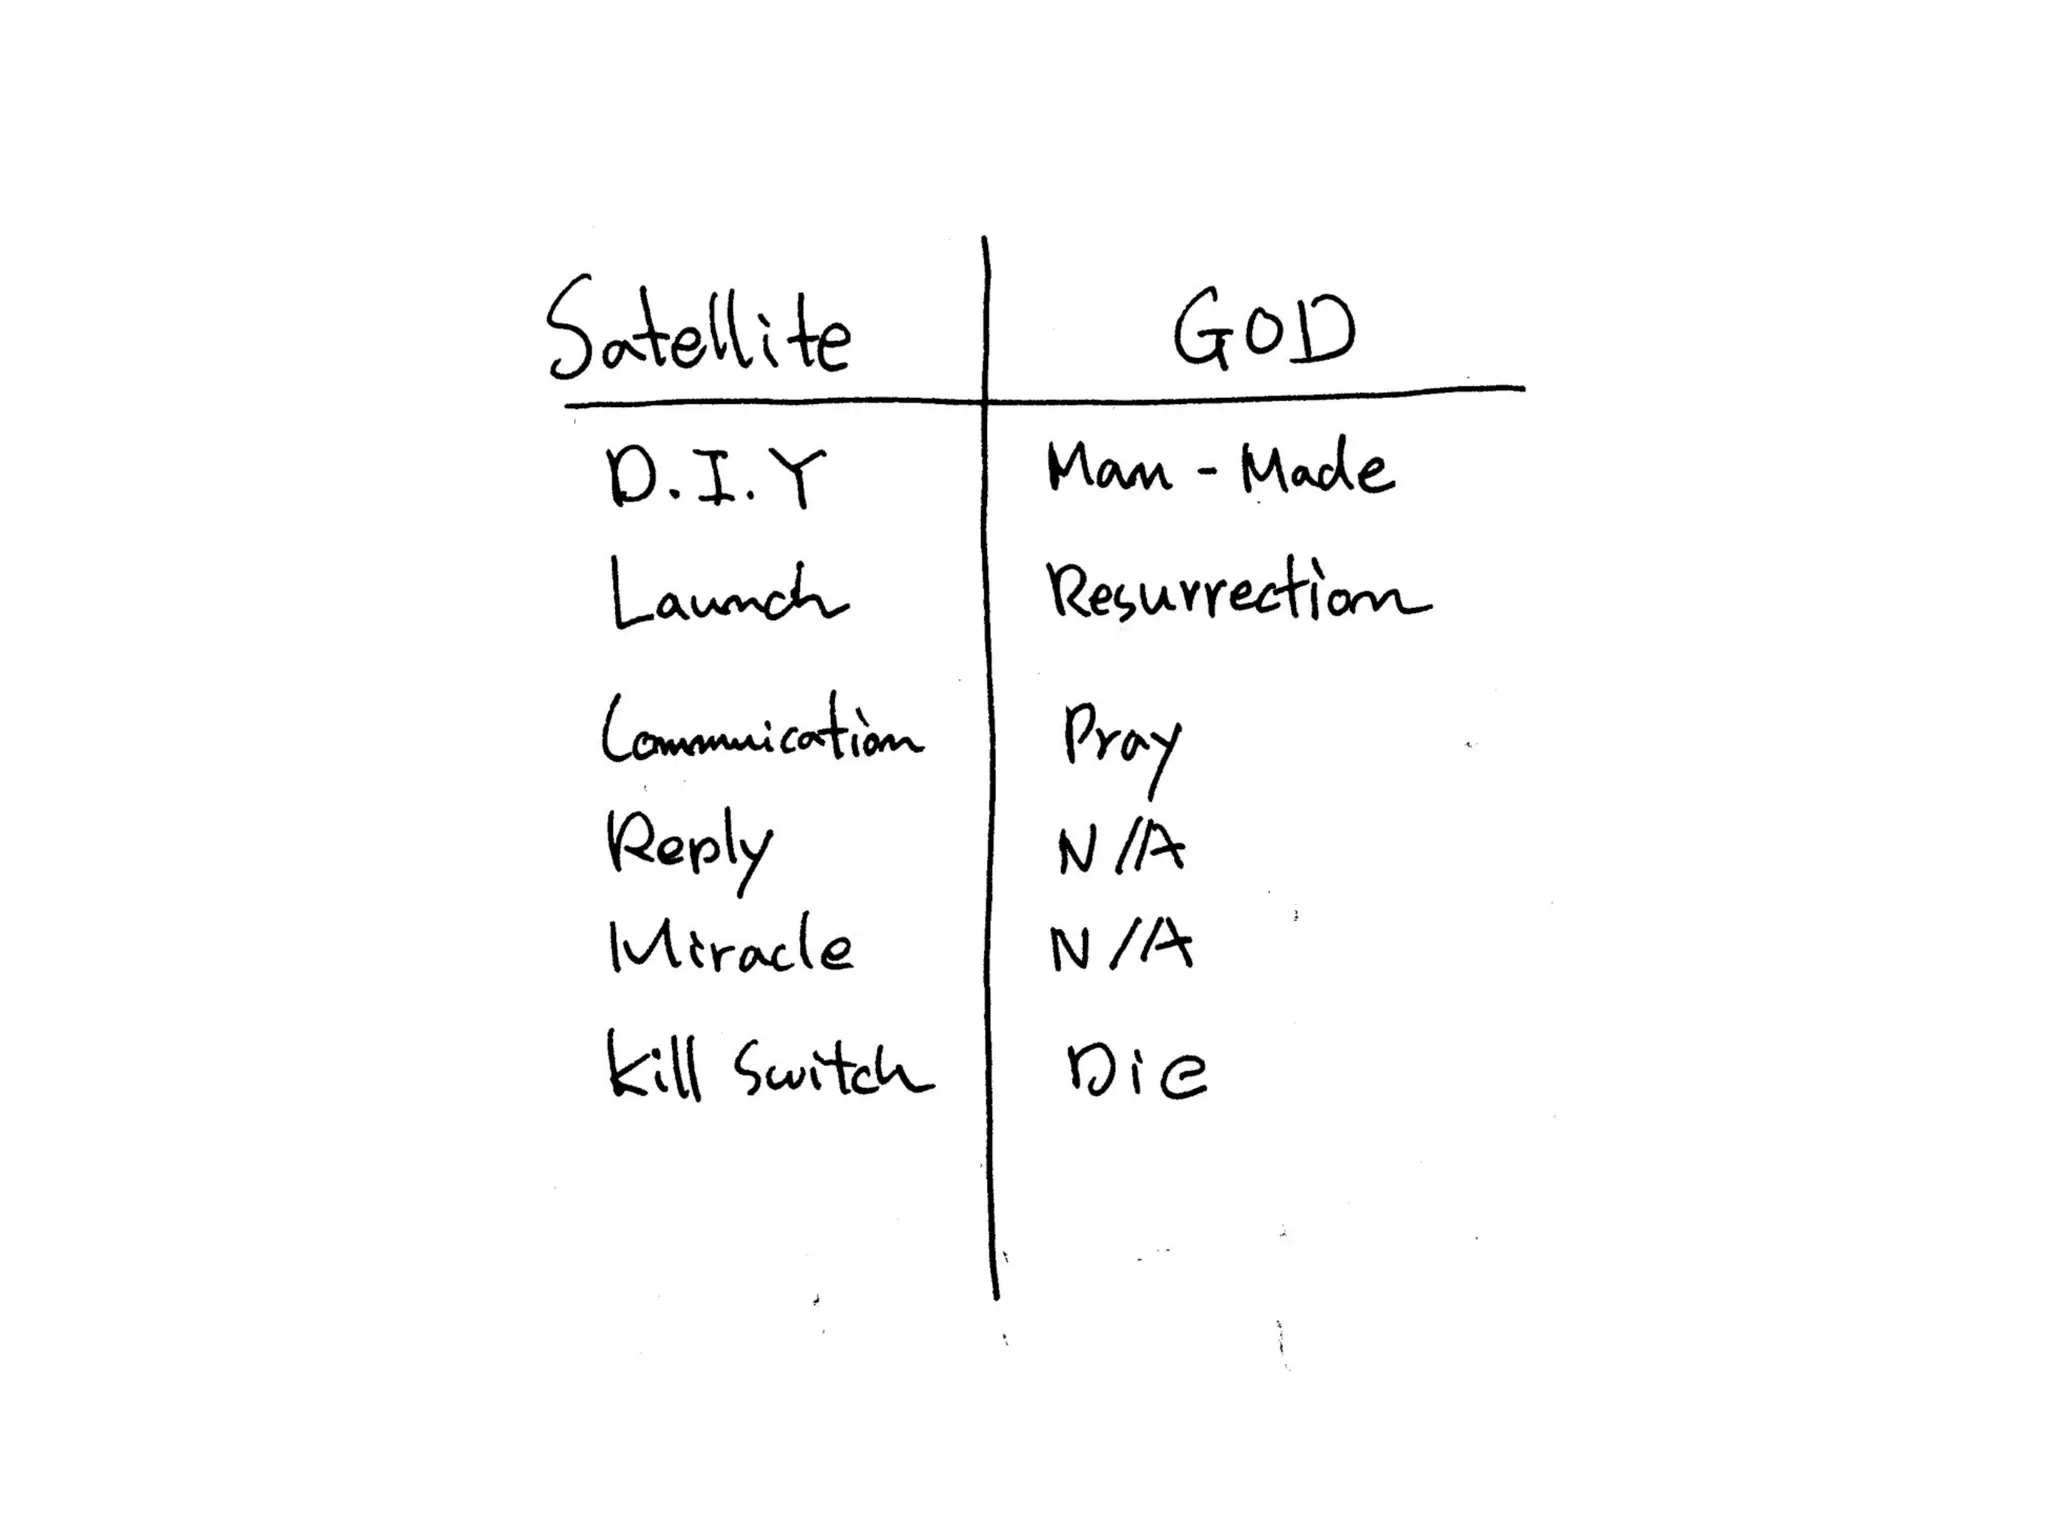 Satellite GOD
D.I.Y Man-Made
Launch Resurrection
Commuication Pray
Reply N/A
Miracle N/A
Kill Switch Die